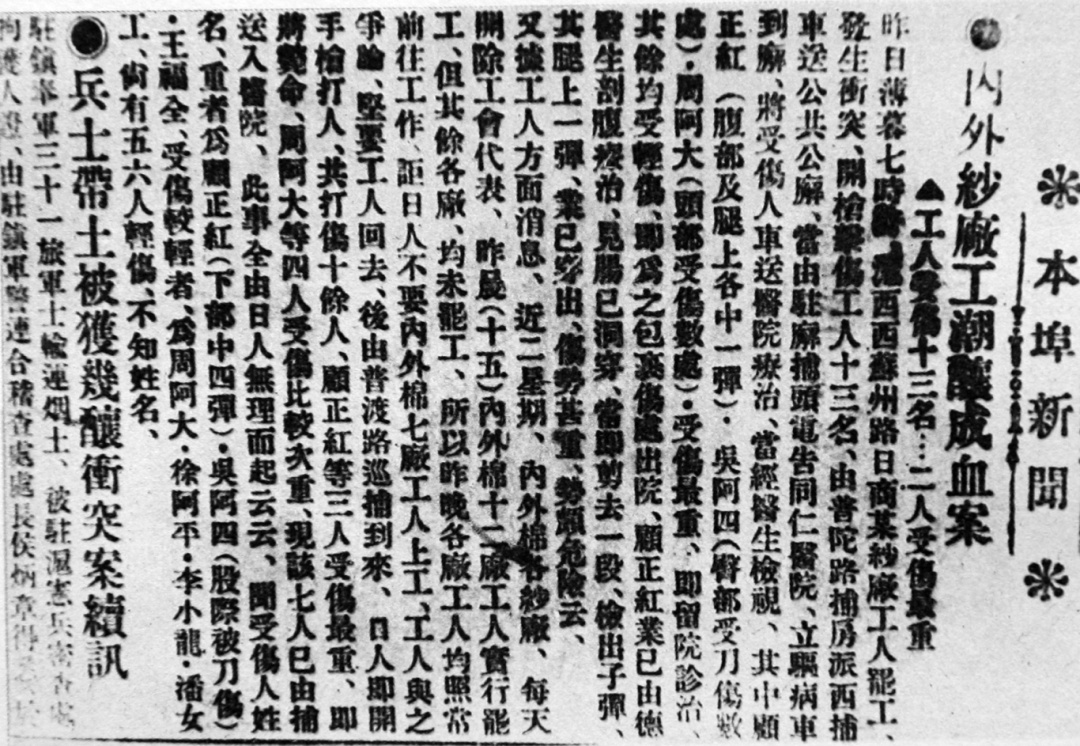 本埠新聞
●內外紗廠工潮釀成血案
▲工人受傷十三名…二人受傷最重
昨日薄暮七時許、滬西西蘇州路日商某紗廠工人罷工、
發生衝突、開槍擊傷工人十三名、由普陀路捕房派西捕
車送公共公廨、當由駐廨捕頭電告同仁醫院、立驅病車
到廨、將受傷人車送醫院療治、當經醫生檢視、其中顧
正紅（腹部及腿上各中一彈）．吳阿四（臀部受刀傷數
處）．周阿大（頭部受傷數處）．受傷最重、即留院診治、
其餘均受輕傷、即爲之包裹傷處出院、顧正紅業已由德
醫生剖腹療治、見腸已洞穿、當即剪去一段、檢出子彈、
其腿上一彈、業已穿出、傷勢甚重、勢頗危險云、
又據工人方面消息、近二星期、內外棉各紗廠、每天
開除工會代表、昨晨（十五）內外棉十二廠工人實行罷
工、但其餘各廠、均未罷工、所以昨晚各廠工人均照常
前往工作、詎日人不要內外棉七廠工人上工、工人與之
爭論、堅要工人回去、後由普渡路巡捕到來、日人即開
手槍打人、共打傷十餘人、顧正紅等三人受傷最重、即
將斃命、周阿大等四人受傷比較次重、現該七人已由捕
送入醫院、此事全由日人無理而起云云、聞受傷人姓
名、重者爲顧正紅（下部中四彈）．吳阿四（股際被刀傷）
．王福全、受傷較輕者、爲周阿大．徐阿平．李小龍．潘女
工、尙有五六人輕傷、不知姓名、
●兵士帶土被獲幾釀衝突案續訊
駐鎮奉軍三十一旅軍士輸運烟土、被駐滬憲兵密查處
拘獲人證、由駐鎮軍警連合稽查處處長侯炳章得